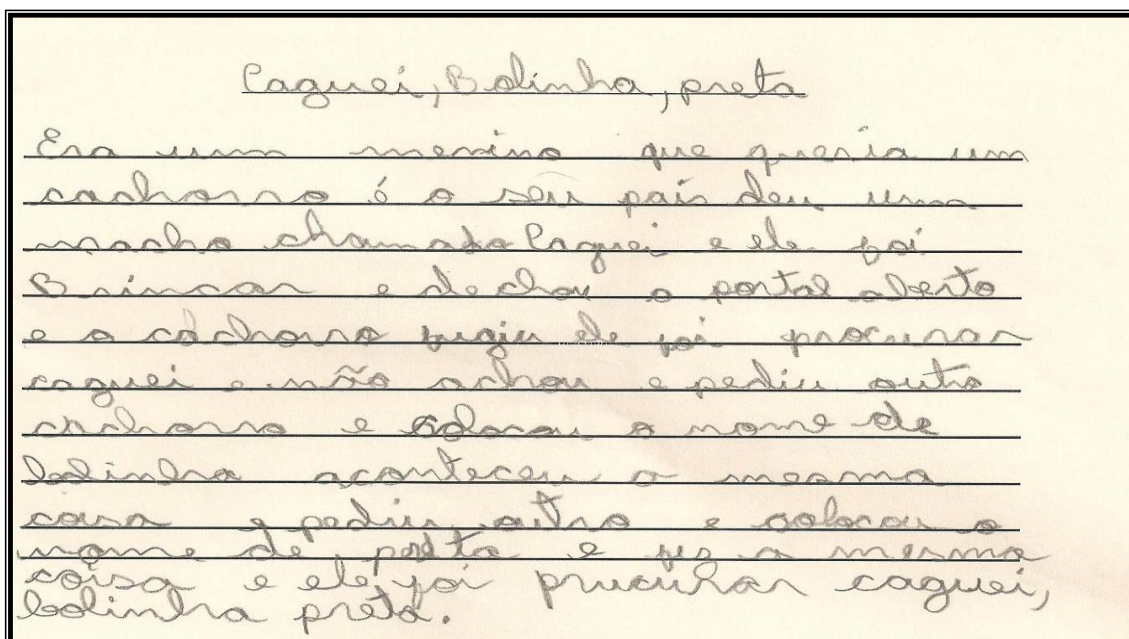 Caguei, Bolinha, preta
Era um menino que queria um
cachorro é o seu pais deu uma
macho chamado Caguei e ele foi
Brincar e dechou o portal aberto
e o cachorro fugiu ele foi procurar
caguei e não achou e pediu outro
cachorro e colocou o nome de
bolinha aconteceu a mesma
coisa e pediu outro e colocou o
nome de preta e fes a mesma
coisa e ele foi prucurar caguei,
bolinha preta.